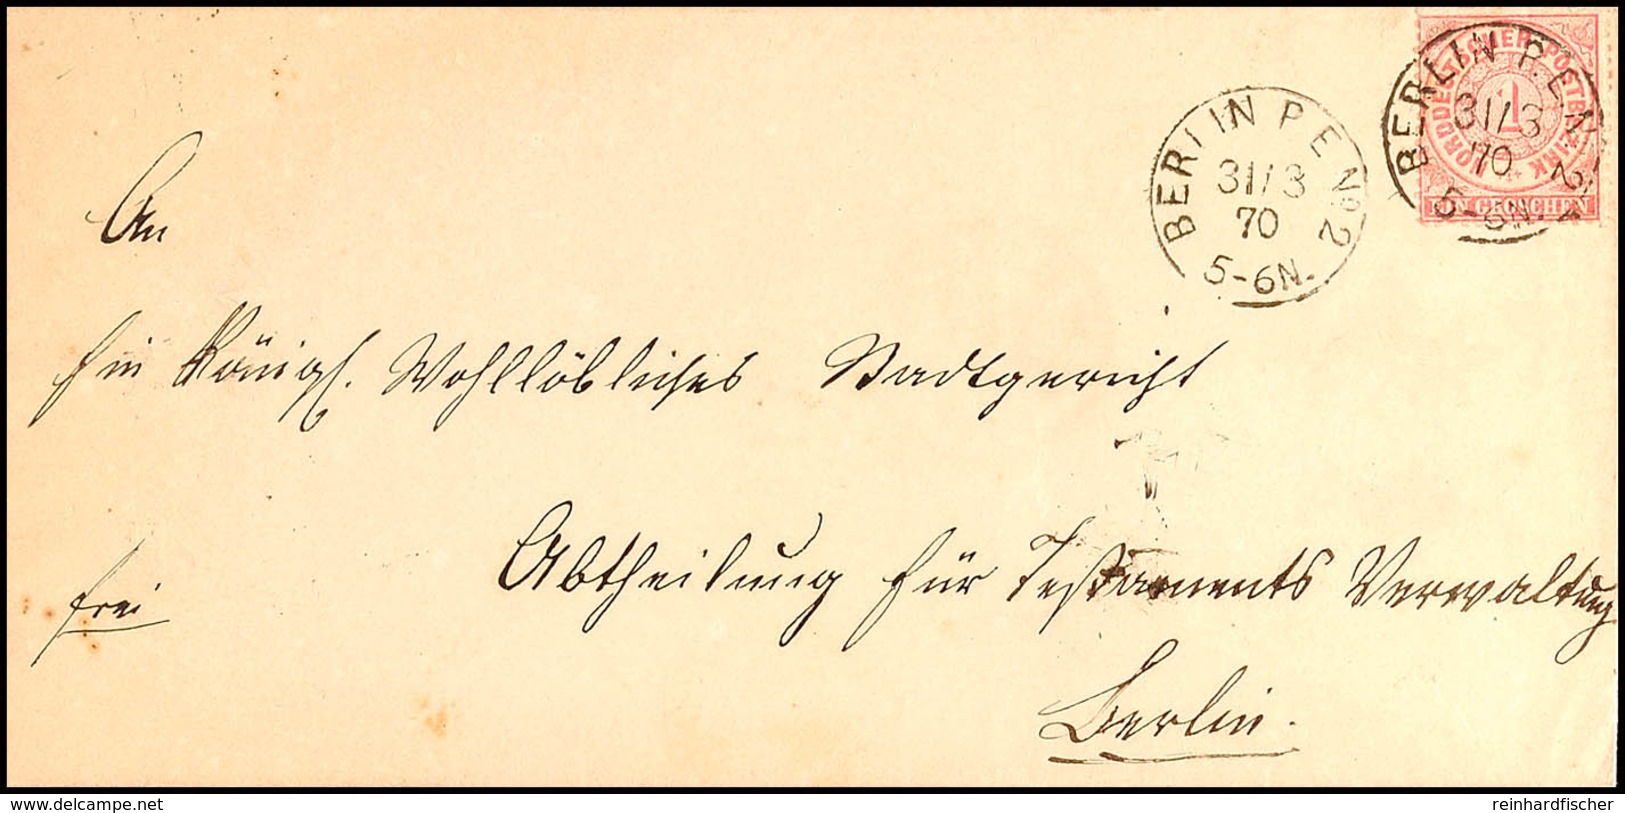 BERLIN P.E. No 2
31/3
70
5-6N.
NORDDEUTSCHER POSTBEZIRK
1
EIN GROSCHEN
BERLIN P.E. No 2
31/3
70
5-6N.
An
Ein Königl. Wohllöbliches Stadtgericht
Abtheilung für Testaments Verwaltung
frei
Berlin.
www.delcampe.net
reinhardfischer